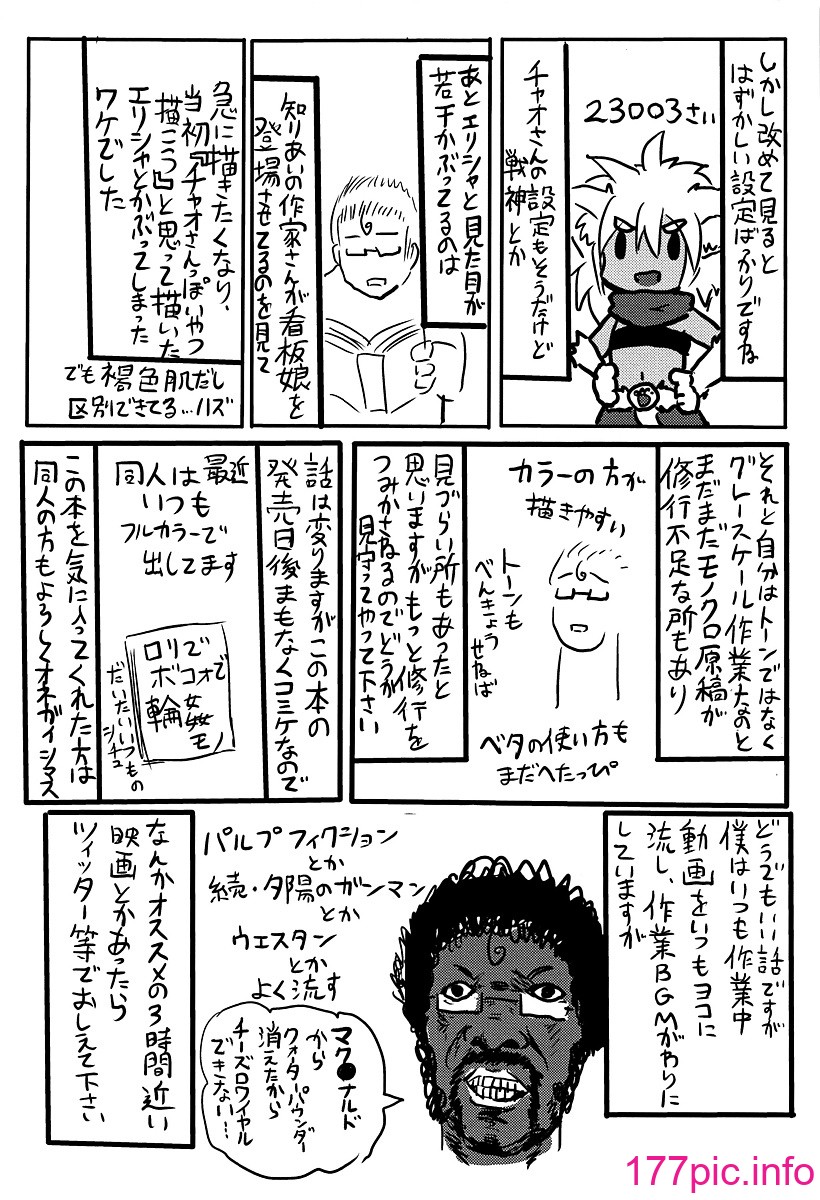 しかし改めて見ると
はずかしい設定ばっかりですね
23003さい
チャオさんの設定もそうだけど
戦神とか
あとエリシャと見た目が
若干かぶってるのは
知りあいの作家さんが看板娘を
登場させてるのを見て
急に描きたくなり、
当初『チャオさんっぽいやつ
描こっ凸と思って描いた
エリシャとかぶってしまった
ワケでした
でも褐色肌だし
区別できてる…ハズ
それと自分はトーンではなく
グレースケール作業なおと
まだまだモノクロ原稿が
修行不足な所もあり
カラーの方が
描きやすい
トーンも
べんきょう
せねば
ベタの使い方も
まだへたっぴ
見づらい所もあったと
思いますがもっと修行を
つみかさねるのでどうか
見守ってやって下さい
話は変りますがこの本の
発売日後まもなくコミケなので
最近
同人は
いつも
フルカラーで
出してます
ロリで
ボコォで
輪姦モノ
だいたいいつもの
シチュ
この本を気に入ってくれた方は
同人の方もよろしくオネガイシマス
どうでもいい話ですが
僕はいつも作業中
動画をいつもヨコに
流し、作業BGMがわりに
していますが
パルプフィクション
とか
続・夕陽のガンマン
とか
ウエスタン
とか
よく流す
マク●ナルド
から
クォーターパウンダー
消えたから
チーズロワイヤル
できない…
なんかオススメの3時間近い
映画とかあったら
ツィッター等でおしえて下さい
177pic.info